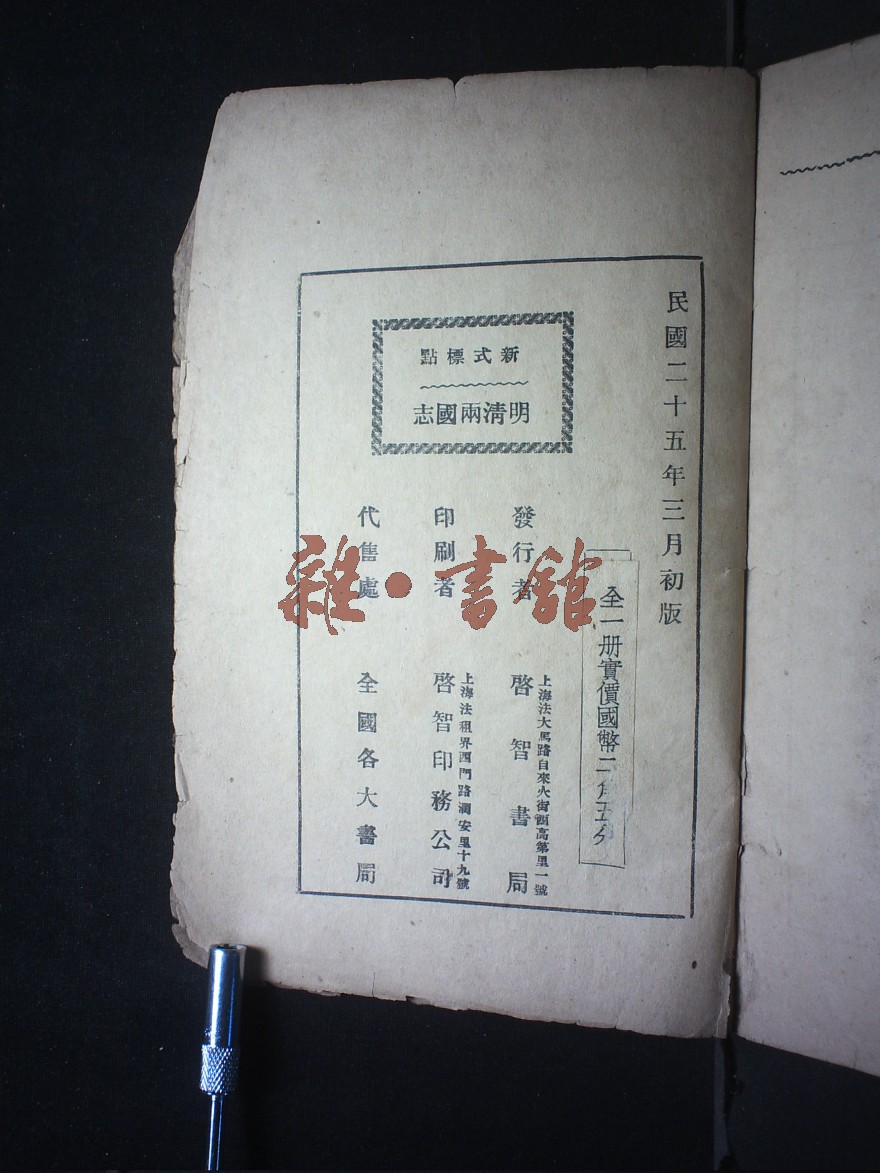 民國二十五年三月初版
全一册實價國幣二角五分
新式標點
明清兩國志
發行者
上海法大馬路自來火街西高第里一號
啓智書局
印刷者
上海法租界西門路潤安里十九號
啓智印務公司
代售處
全國各大書局
雜·書館